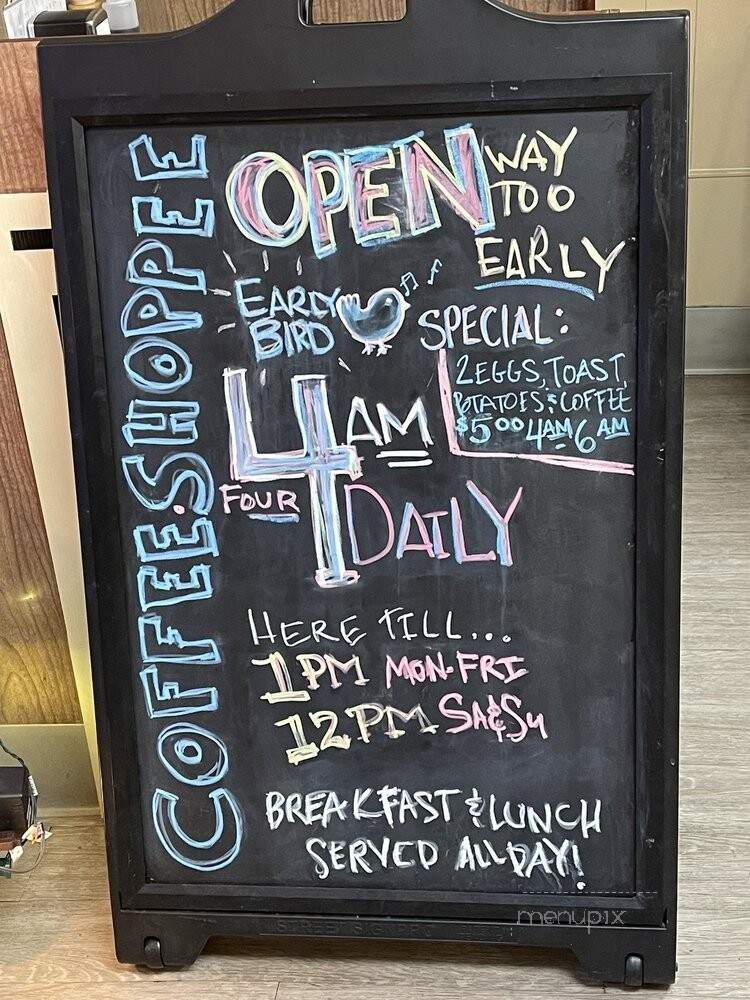 COFFEE SHOPPEE
OPEN WAY TOO EARLY
EARLY BIRD SPECIAL:
2 EGGS, TOAST,
POTATOES & COFFEE
$5.00 4AM-6AM
4AM
FOUR
DAILY
HERE TILL...
1PM MON-FRI
12PM SA&SU
BREAKFAST & LUNCH
SERVED ALL DAY!
menupix